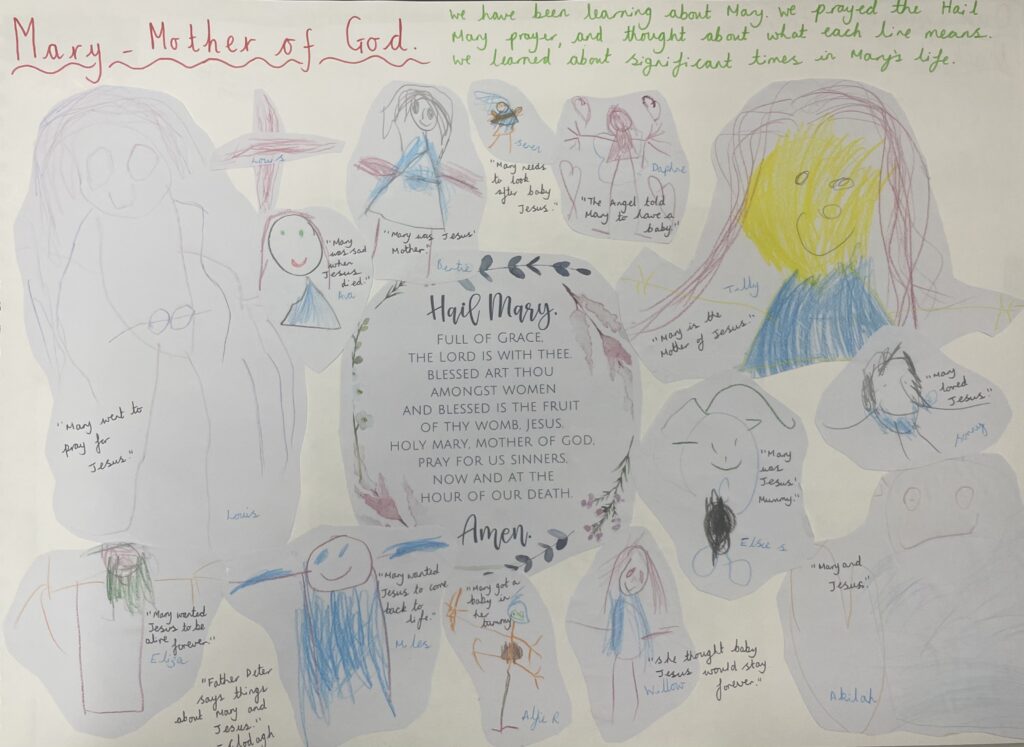 Mary - Mother of God.
We have been learning about Mary. We prayed the Hail
Mary prayer, and thought about what each line means.
We learned about significant times in Mary's life.
Louis
"Mary was sad
when
Jesus
died."
Ava
"Mary was Jesus'
Mother."
Bertie
Seren
"Mary needs
to look
after baby
Jesus."
Daphne
"The Angel told
Mary to have a
baby."
Tally
"Mary is the
Mother of Jesus."
"Mary went to
pray for
Jesus."
Louis
Hail Mary.
FULL OF GRACE,
THE LORD IS WITH THEE.
BLESSED ART THOU
AMONGST WOMEN
AND BLESSED IS THE FRUIT
OF THY WOMB, JESUS.
HOLY MARY, MOTHER OF GOD,
PRAY FOR US SINNERS,
NOW AND AT THE
HOUR OF OUR DEATH.
Amen.
"Mary
loved
Jesus."
"Mary
was
Jesus'
Mummy."
Elsie S
"Mary and
Jesus."
Akilah
"Mary wanted
Jesus to be
alive
forever."
Eliza
"Father Peter
says things
about Mary and
Jesus."
Clodagh
"Mary wanted
Jesus to come
back to
life."
Miles
"Mary got a
baby in
her
tummy."
Alfie R
"She thought baby
Jesus would stay
forever."
Willow